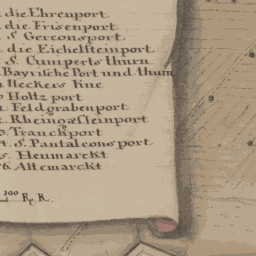 die Ehrenport
die Frisenport
S Gereonsport
die Eichelsteinport
S. Cumperts Thurn
Bayrische Port und Thurn
Neckers Kne
Holtz port
Feldgrabenport
Rheingassenport
Tranckport
S. Pantaleons port
Heumarckt
6. Altemarckt
100 Re. R.